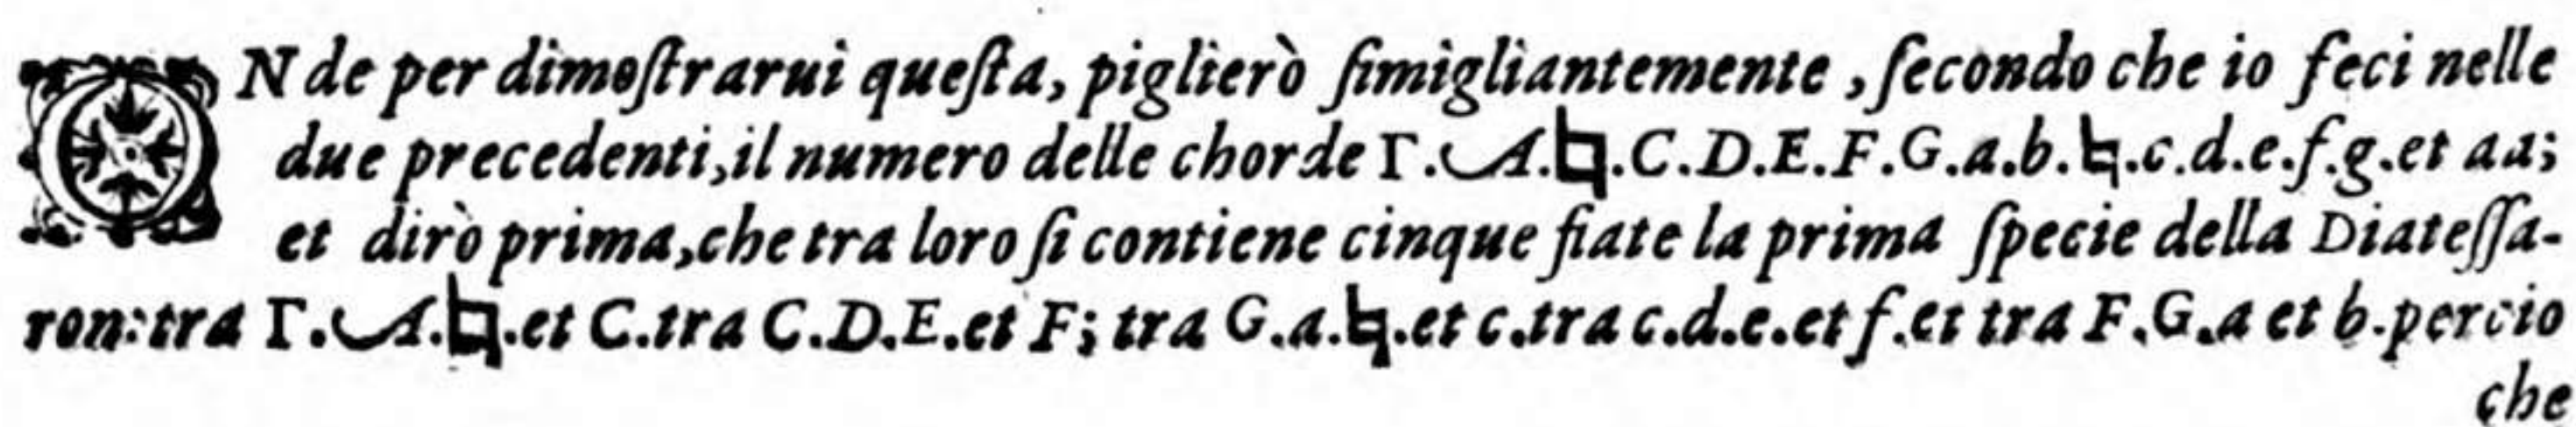 ONde per dimoſtrarui queſta, piglierò ſimigliantemente, ſecondo che io feci nelle
due precedenti, il numero delle chorde Γ.A.♮.C.D.E.F.G.a.b.♮.c.d.e.f.g.et aa;
et dirò prima, che tra loro ſi contiene cinque fiate la prima ſpecie della Diateſſa-
ron: tra Γ.A.♮.et C. tra C.D.E.et F; tra G.a.♮.et c. tra c.d.e.et f. et tra F.G.a et b. percio
che